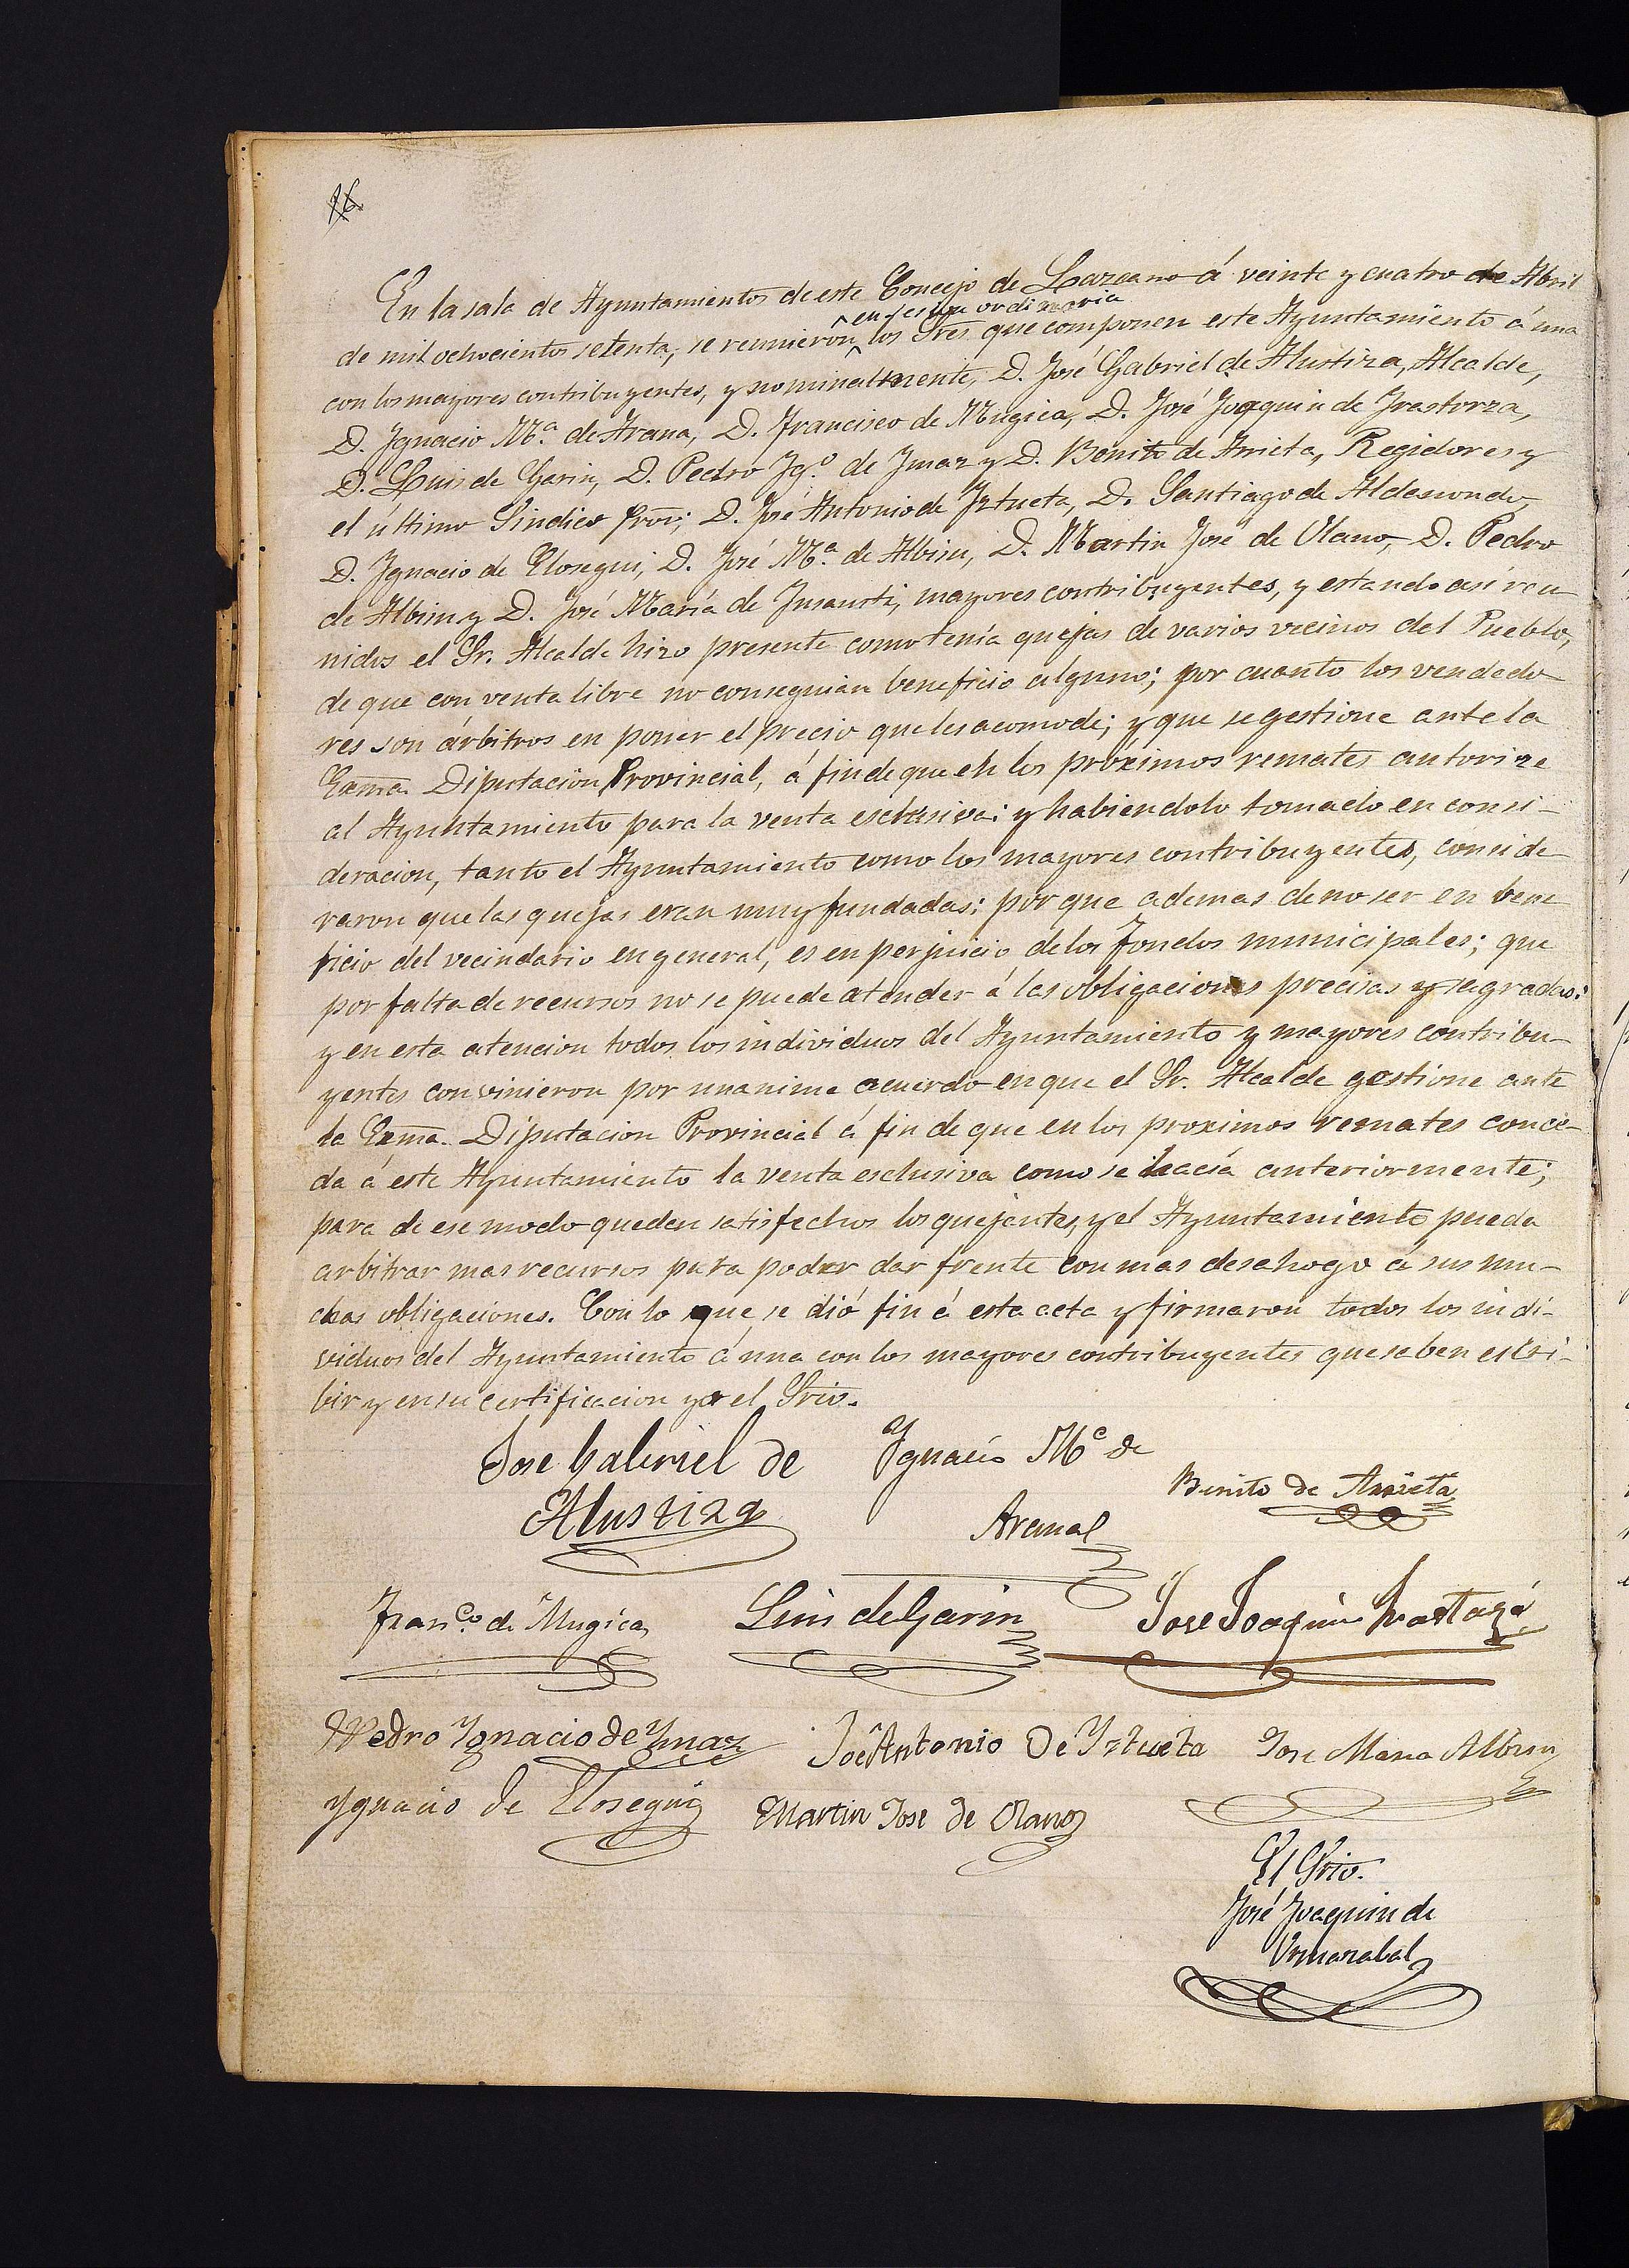 16
En la sala de Ayuntamientos de este Concejo de Lazcano á veinte y cuatro de Abril
^ en sesion ordinaria
de mil ochocientos setenta, se reunieron ^ los Sres. que componen este Ayuntamiento á una
con los mayores contribuyentes, y nominalmente, D. José Gabriel de Alustiza, Alcalde,
D. Ygnacio Mª. de Arana, D. Francisco de Mugica, D. José Joaquin de Yrastorza,
D. Luis de Garin, D. Pedro Ygº. de Ymaz y D. Benito de Arrieta, Regidores y
el último Sindico Pror; D. José Antonio de Yztueta, D. Santiago de Aldasoro,
D. Ygnacio de Elosegui, D. José Mª. de Albisu, D. Martin José de Olano, D. Pedro
de Albisu y D. José María de Ynsausti, mayores contribuyentes, y estando asi reu-
nidos el Sr. Alcalde hizo presente como tenía quejas de varios vecinos del Pueblo,
de que con venta libre no conseguian beneficio alguno; por cuanto los vendedo-
res son árbitros en poner el precio que les acomode; y que se gestione ante la
Exma. Diputacion Provincial, á fin de que en los próximos remates autorize
al Ayuntamiento para la venta esclusiva: y habiendolo tomado en consi-
deracion, tanto el Ayuntamiento como los mayores contribuyentes, conside-
raron que las quejas eran muy fundadas: por que ademas de no ser en bene-
ficio del vecindario en general, es en perjuicio de los fondos municipales; que
por falta de recursos no se puede atender á las obligaciones precisas y sagradas:
y en esta atencion todos los individuos del Ayuntamiento y mayores contribu-
yentes convinieron por unanime acuerdo en que el Sr. Alcalde gestione ante
la Exma. Diputacion Provincial á fin de que en los proximos remates conce-
da á este Ayuntamiento la venta esclusiva como se hacía anteriormente;
para de ese modo queden satisfechos los quejantes, y el Ayuntamiento pueda
arbitrar mas recursos para poder dar frente con mas desahogo á sus mu-
chas obligaciones. Con lo que se dió fin á esta acta y firmaron todos los indi-
viduos del Ayuntamiento á una con los mayores contribuyentes que saben escri-
bir y en su certificacion yo el Srio.
Jose Gabriel de Alustiza
Ygnacio Mª de Arana
Benito de Arrieta
Franco. de Mugica
Luis de Garin
Jose Joaquin
Pedro Ygnacio de Ymaz
José Antonio De Yztueta
Jose Maria Albisu
Ygnacio de Elosegui
Martin Jose de Olano
El Srio.
José Joaquin de
Urmazabal